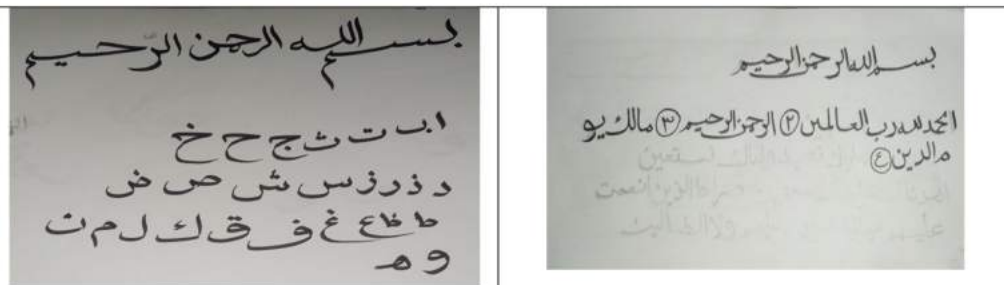 بسم الله الرحمن الرحيم
ا ب ت ث ج ح خ
د ذ ر ز س ش ص ض
ط ظ ع غ ف ق ك ل م ن
و ه
بسم الله الرحمن الرحيم
الحمد لله رب العالمين ٢ الرحمن الرحيم ٣ مالك يو
م الدين ٤